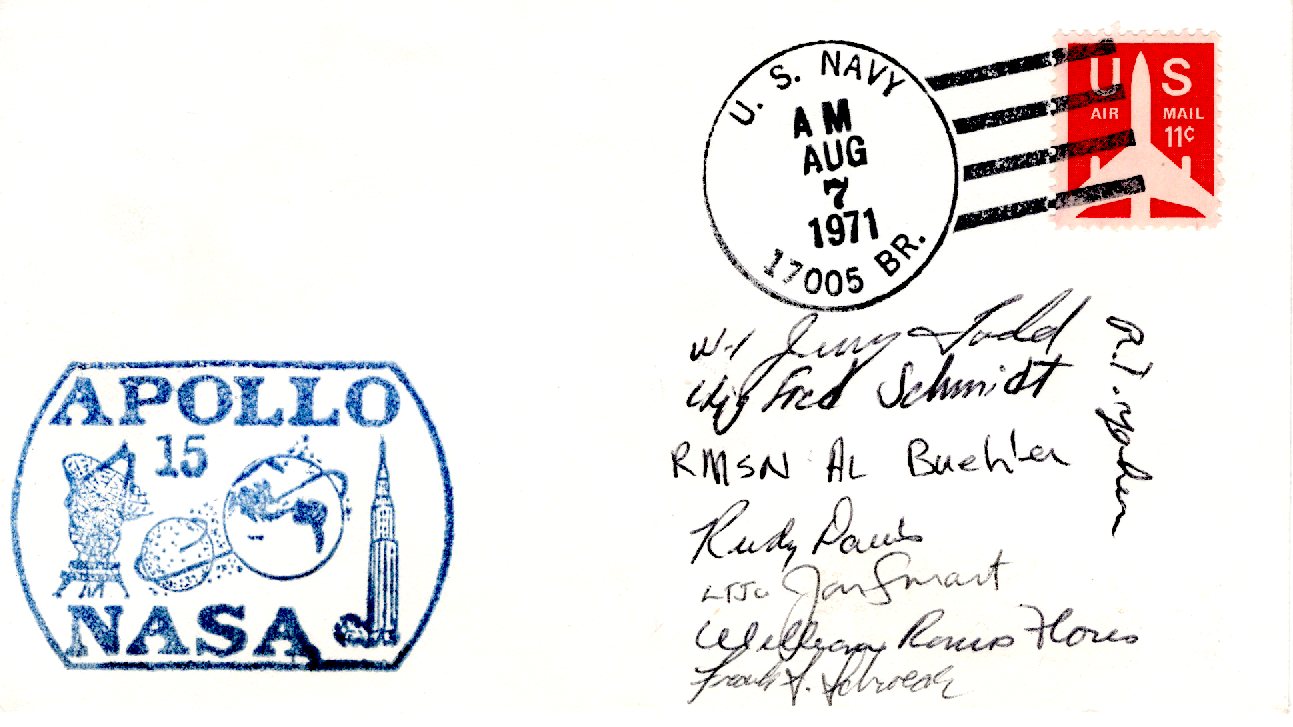 U. S. NAVY
AM
AUG
7
1971
17005 BR.
U S
AIR MAIL
11¢
Jerry Todd
Fred Schmidt
RMSN AL Buehler
Rudy
LTJG Jon Smart
William Ramos Flores
Frank J.
R.J.
APOLLO
15
NASA